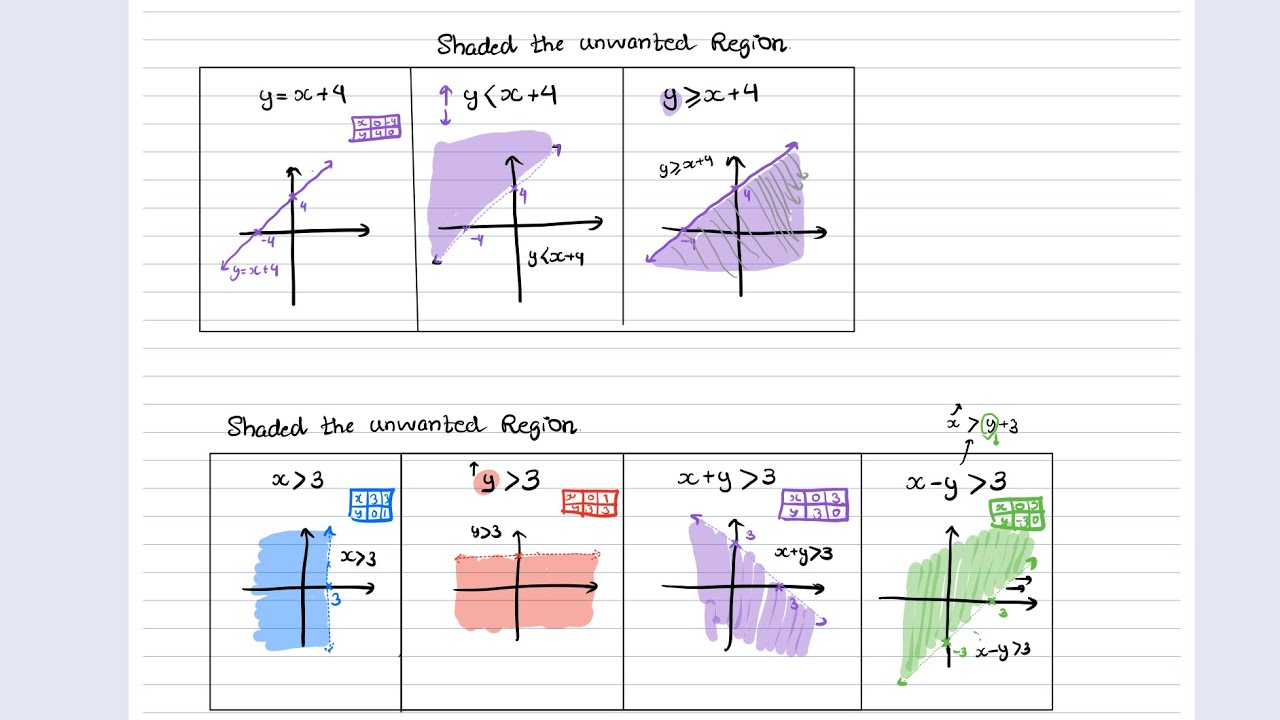 Shaded the unwanted Region
y = x + 4
x 0 -4
y 4 0
4
-4
y = x + 4
y < x + 4
4
-4
y < x + 4
y ⩾ x + 4
y ⩾ x + 4
4
-4
Shaded the unwanted Region
x > 3
x 3 3
y 0 1
x > 3
3
y > 3
x 0 1
y 3 3
y > 3
x + y > 3
x 0 3
y 3 0
3
x + y > 3
3
x > y + 3
x - y > 3
x 0 3
y -3 0
3
-3
x - y > 3